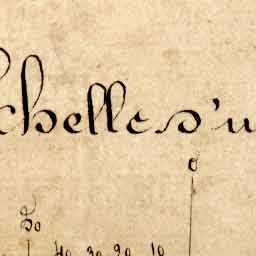 chelle d'u
0
50
40 30 20 10